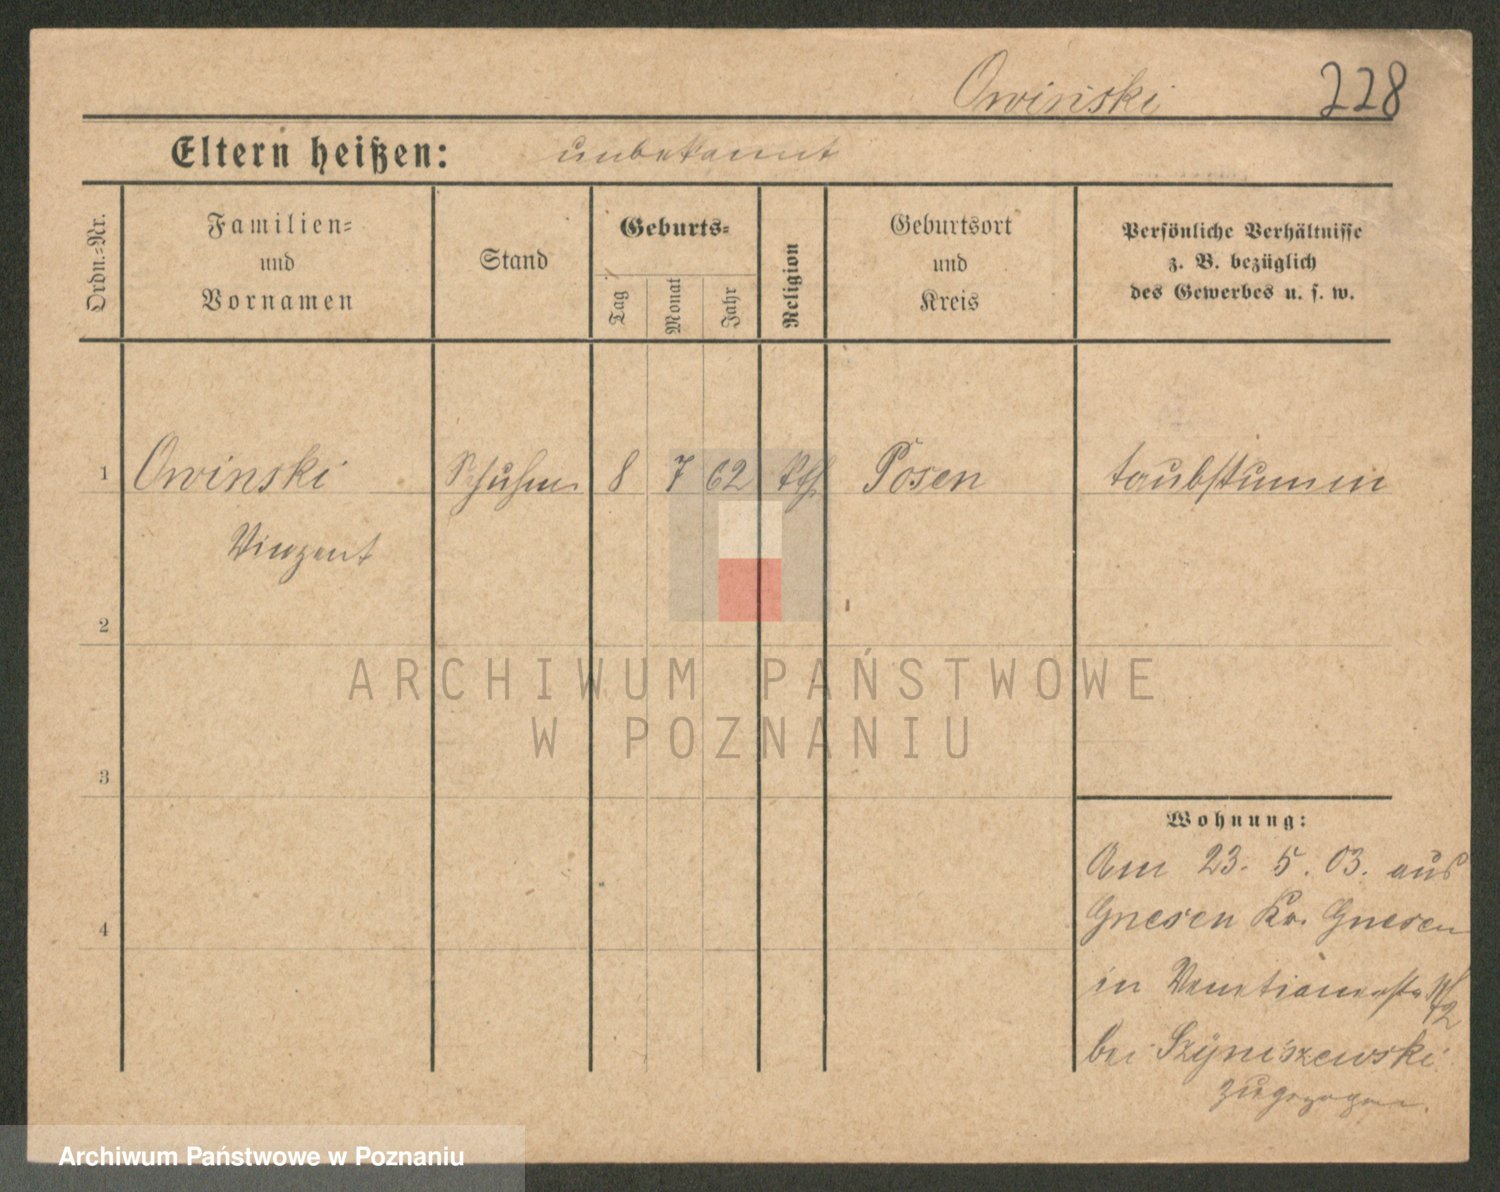 Owinski
228
Eltern heißen: unbekannt
Ordn.-Nr.
Familien-
und
Vornamen
Stand
Geburts-
Tag
Monat
Jahr
Religion
Geburtsort
und
Kreis
Persönliche Verhältnisse
z. B. bezüglich
des Gewerbes u. s. w.
1 Owinski Schuhm 8 7 62 kth Posen taubstumm
Vinzent
2
3
4
Wohnung:
Am 23. 5. 03. aus
Gnesen Kr. Gnesen
in Venetianerstr
bei Szyniszewski
zugezogen.
ARCHIWUM PAŃSTWOWE
W POZNANIU
Archiwum Państwowe w Poznaniu